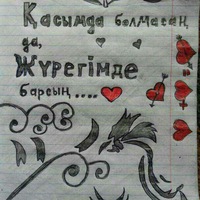 Қасымда болмасаң
да,
Жүрегімде
барсың....